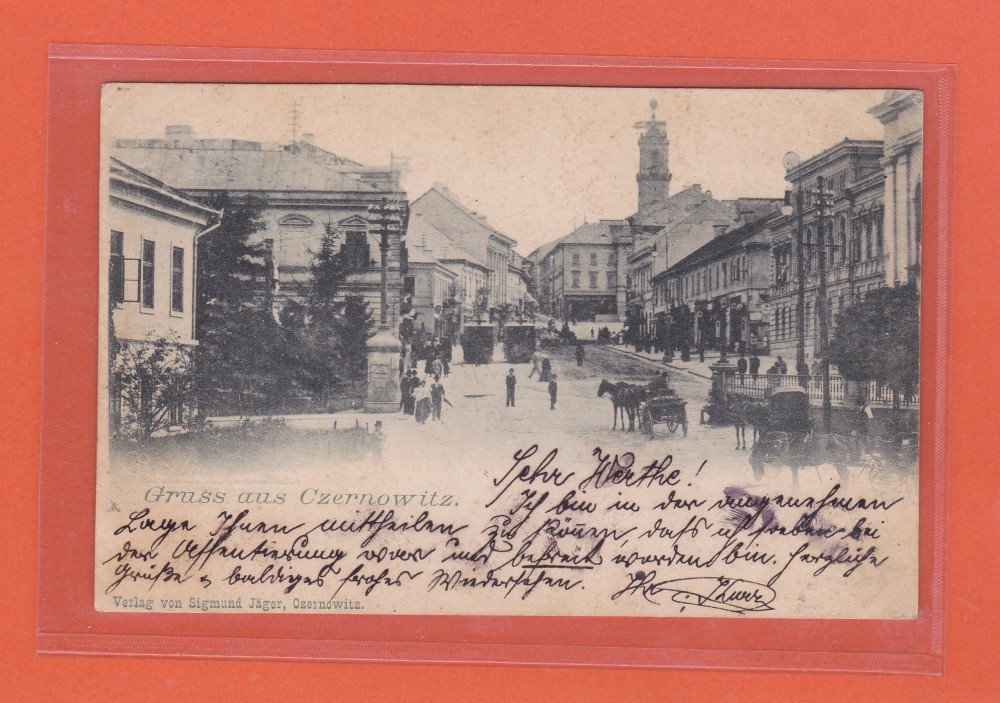 Gruss aus Czernowitz.
Sehr Werthe!
Ich bin in der angenehmen
Lage Ihnen mittheilen zu können, daß ich soeben bei
der Assentierung war und befreit worden bin. Herzliche
Grüße & baldiges frohes Wiedersehen. Ihr
Verlag von Sigmund Jäger, Czernowitz.